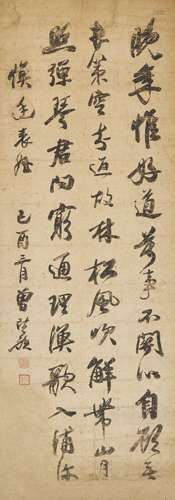 晚年惟好道萬事不關心自顧無
長策空知返故林松風吹解帶山月
照彈琴君問窮通理漁歌入浦深
煥廷表姪 己酉三月 曾望顏